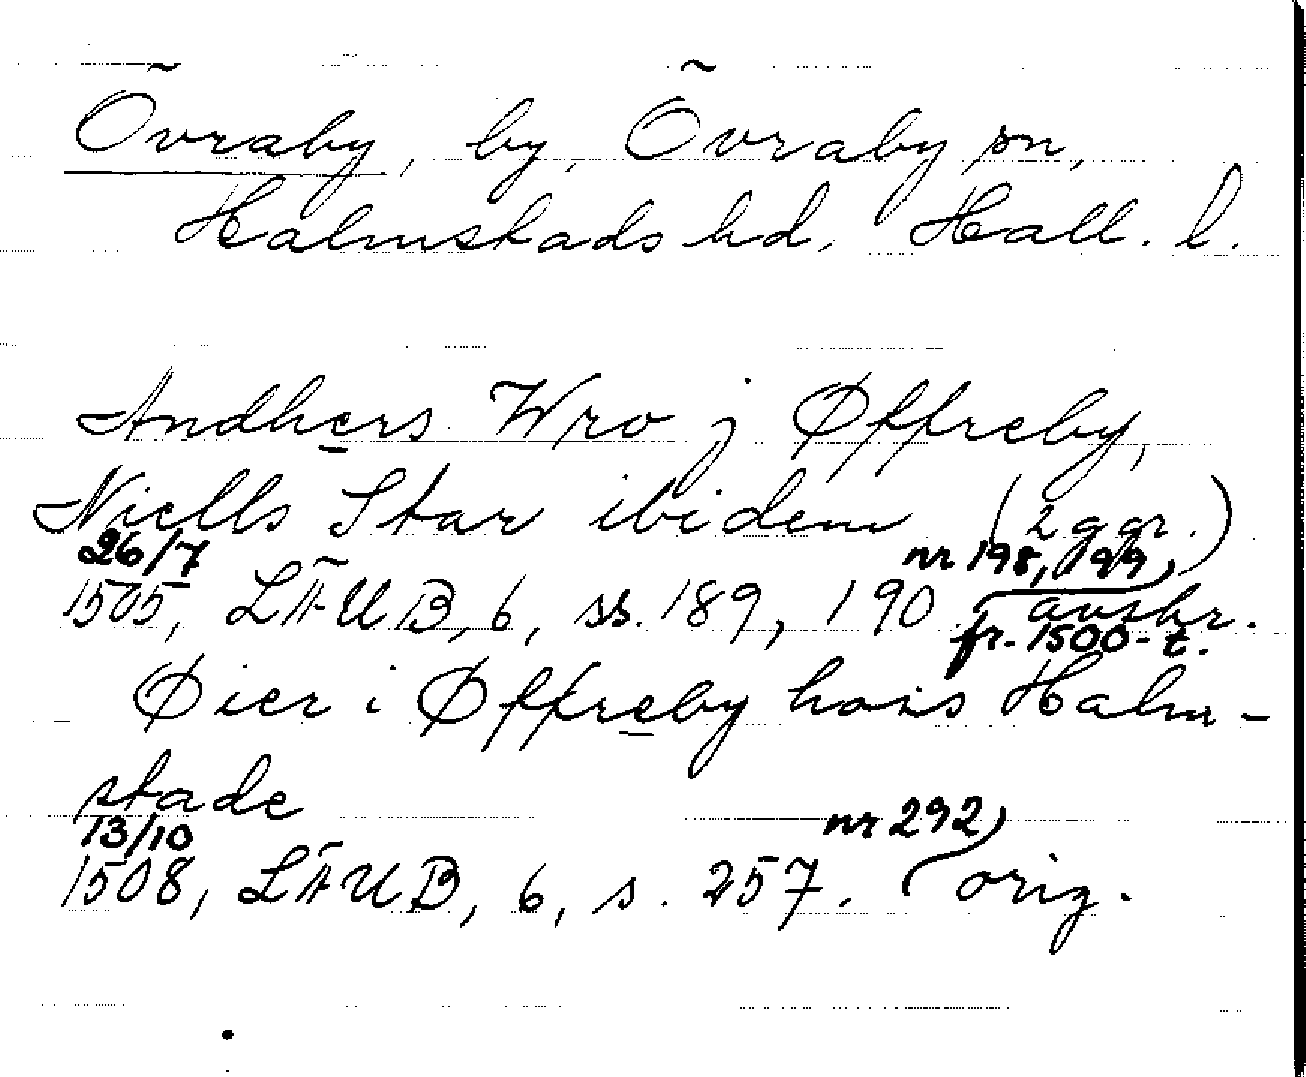 Övraby, by, Övraby sn,
Halmstads hd, Hall. l.
Andhers Wro j Øffreby,
Niells Star ibidem (2 ggr.)
26/7 nr 198, 199,
1505, LÄUB, 6, ss. 189, 190. avskr.
fr. 1500-t.
Øier i Øffreby hois Halm-
stade
13/10 nr 292,
1508, LÄUB, 6, s. 257. orig.